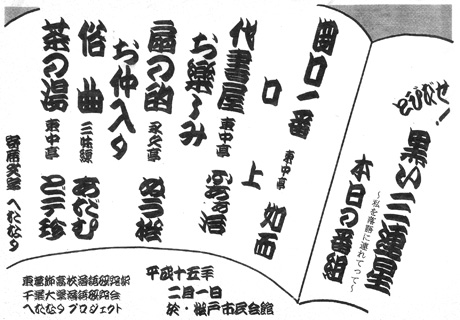 とびだせ!
黒い三連星
〜私を落語に連れてって〜
本日の番組
開口一番 東中亭 如雨
口上
代書屋 東中亭
お楽しみ
扇の的 永久亭
お仲入り
俗曲 三味線 あだむ
茶の湯 東中亭 ど平珍
寄席文字 へたなり
平成十五年
二月一日
於・松戸市民会館
東葛飾高校落語研究部
千葉大落語研究会
へたなりプロジェクト